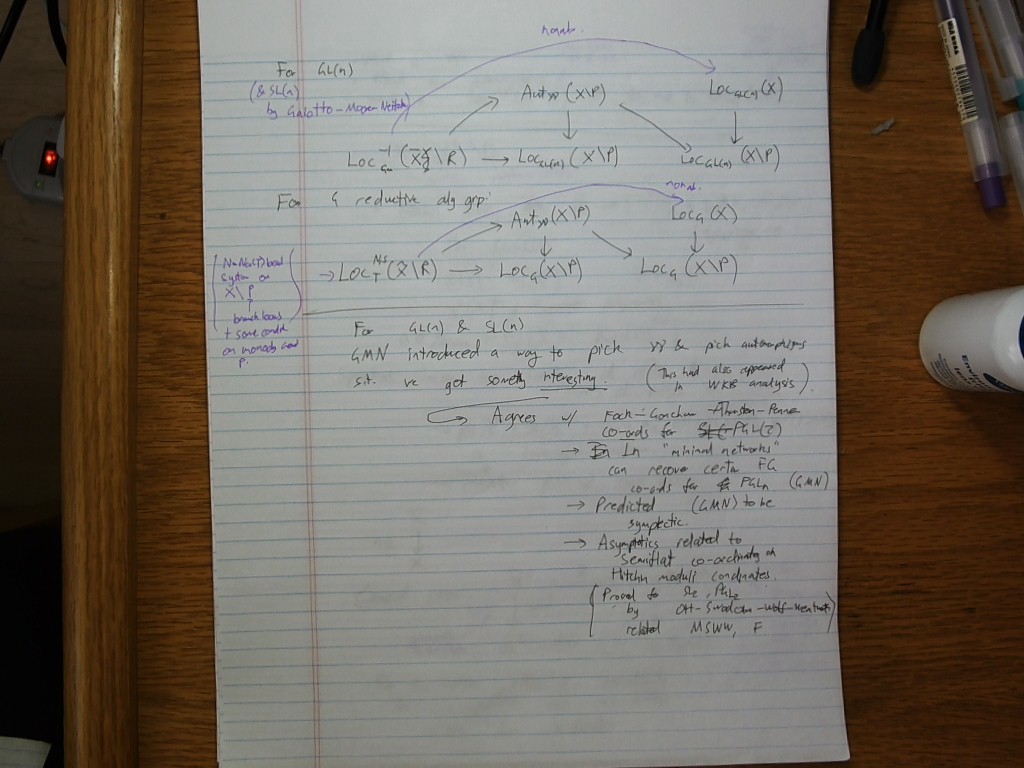 nonab.
For GL(n)
(& SL(n)
by Gaiotto-Moore-Neitzke)
Aut (X\P)
Loc (X)
Loc (X \ R) → Loc GL(n) (X\P)
Loc GL(n) (X\P)
For G reductive alg grp:
nonab.
Aut (X\P)
Loc G (X)
→ Loc T (X\R) → Loc G (X\P)
Loc G (X\P)
local
system on
X\P
branch locus
+ some condit
on monodromy around
P.
For GL(n) & SL(n)
GMN introduced a way to pick & pick automorphisms
s.t. we get somethg interesting. (This had also appeared
in WKB analysis).
Agrees w/ Fock-Goncharov Thurston-Penner
co-ords for PGL(2)
→ In "minimal networks"
can recover certain FG
co-ords for PGLn (GMN)
→ Predicted (GMN) to be
symplectic.
→ Asymptotics related to
Semiflat co-ordinates on
Hitchin moduli coordinates.
(Proved for SL2, PGL2
by
related MSWW, F)